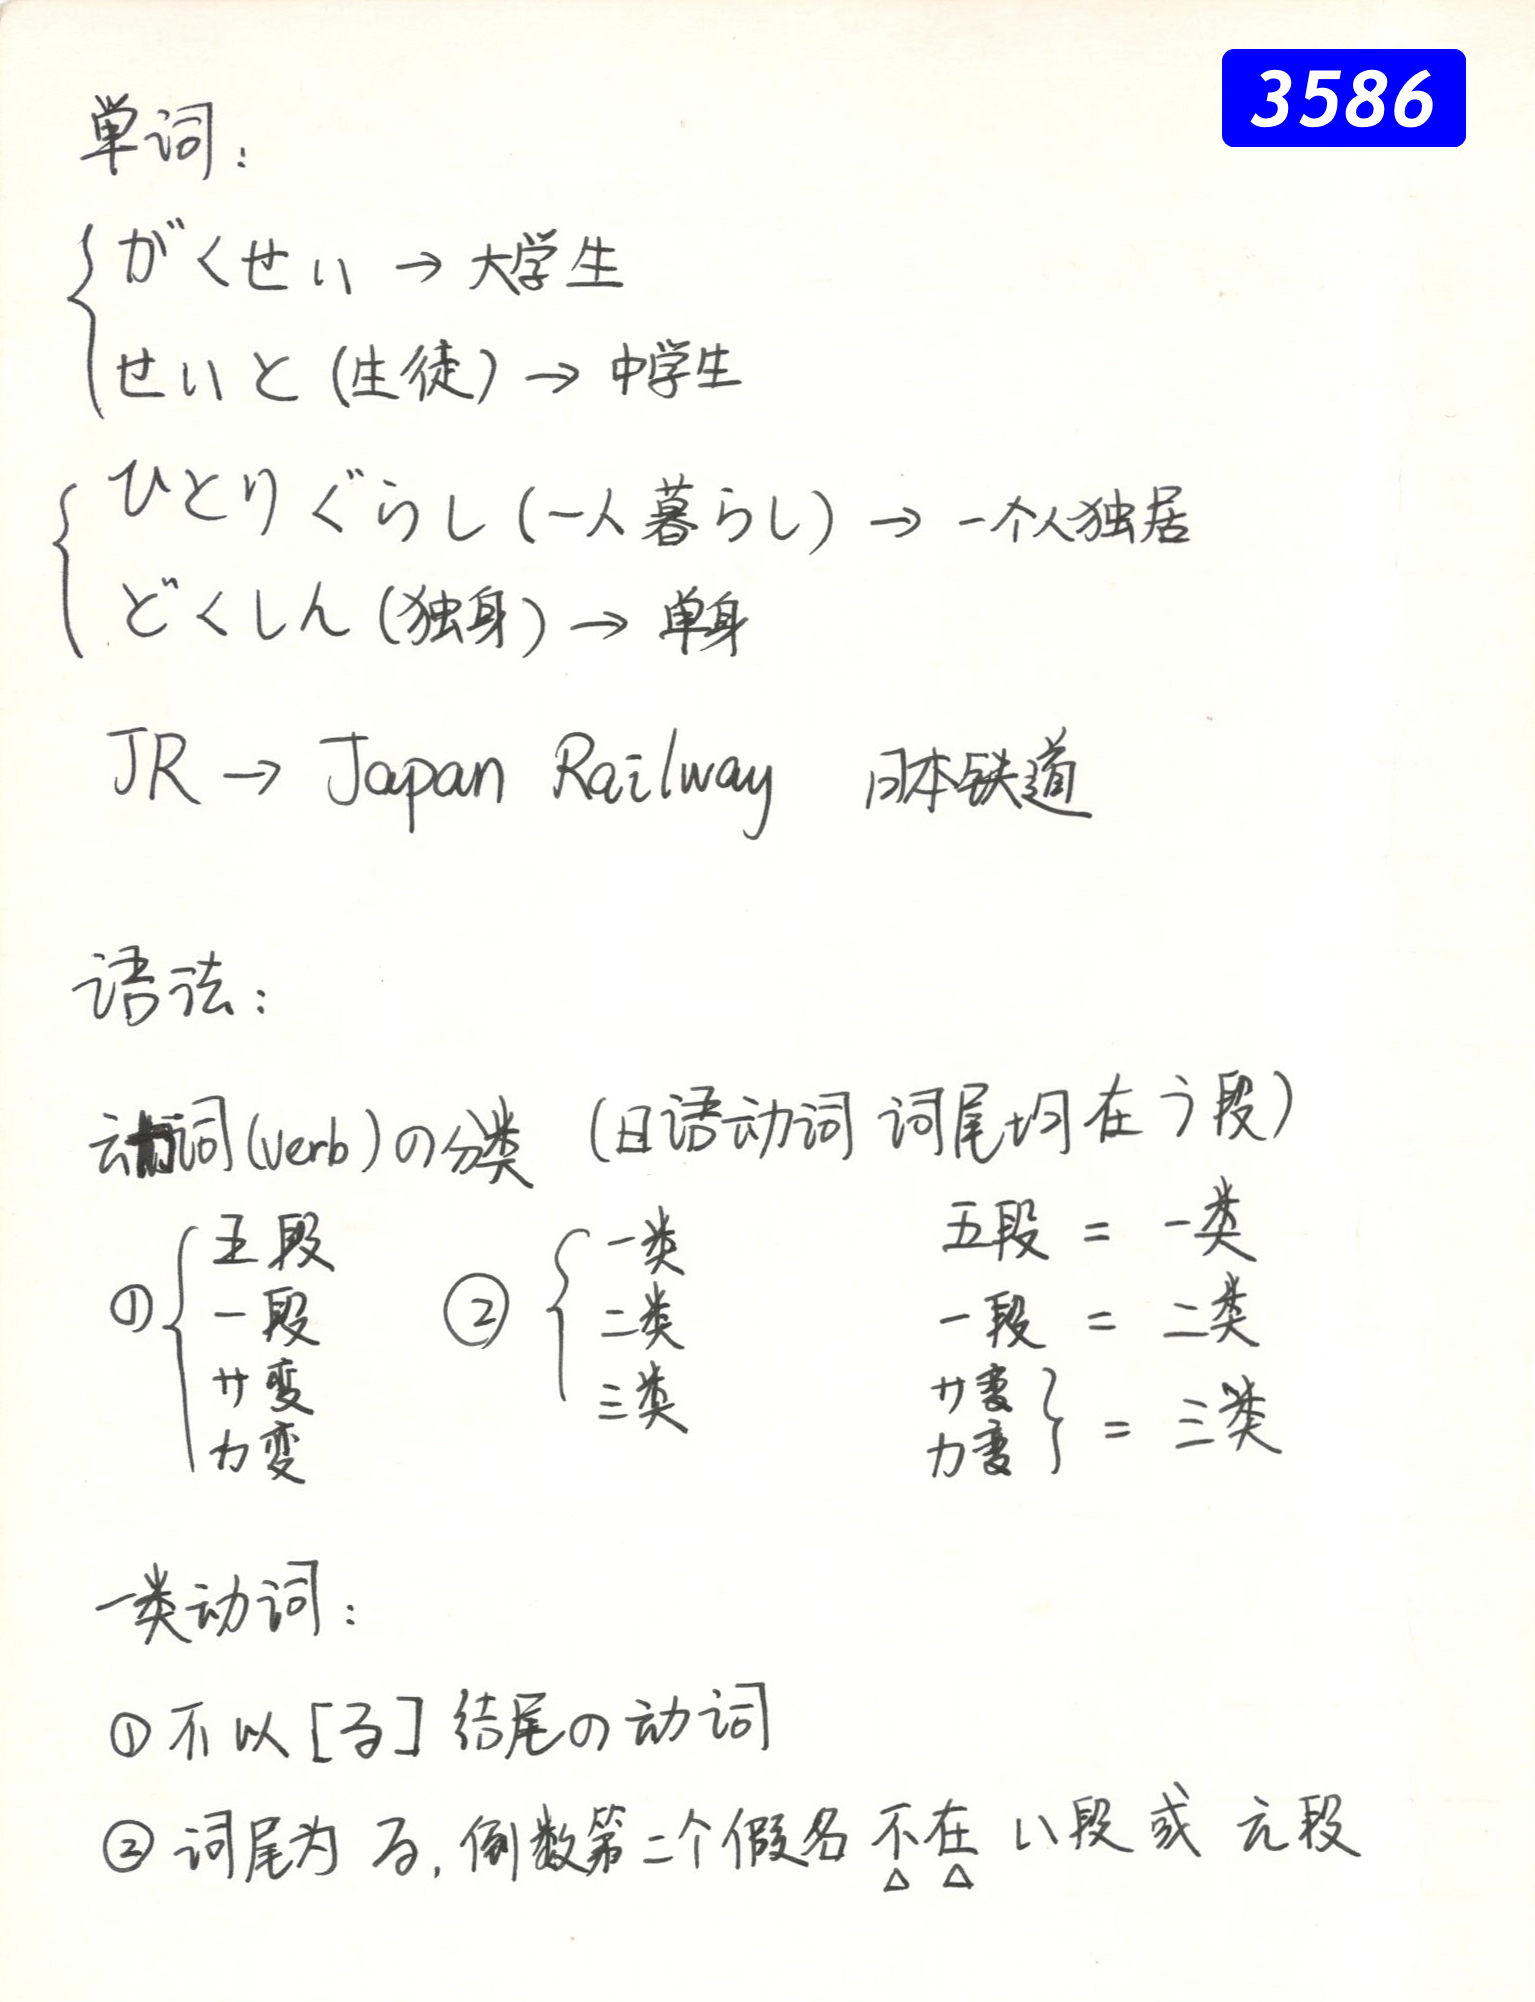 3586
单词:
がくせい → 大学生
せいと (生徒) → 中学生
ひとりぐらし (一人暮らし) → 一个人独居
どくしん (独身) → 单身
JR → Japan Railway 日本铁道
语法:
动词(verb)の分类 (日语动词 词尾均在う段)
① 五段 一段 サ变 カ变
② 一类 二类 三类
五段 = 一类
一段 = 二类
サ变 カ变 = 三类
一类动词:
① 不以[る]结尾の动词
② 词尾为 る, 倒数第二个假名 不在 い段 或 え段